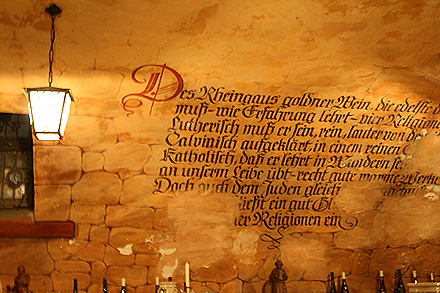 Des Rheingaus goldner Wein, die edelste
muß-wie Erfahrung lehrt-vier Religion
Lutherisch muß er sein, rein, lauter von
Calvinisch aufgeklärt, in einem reinen
Katholisch, daß er lehrt in Wandern
an unserm Leibe übt-recht gute
Doch auch dem Juden gleich
ist ein gut
er Religionen ein